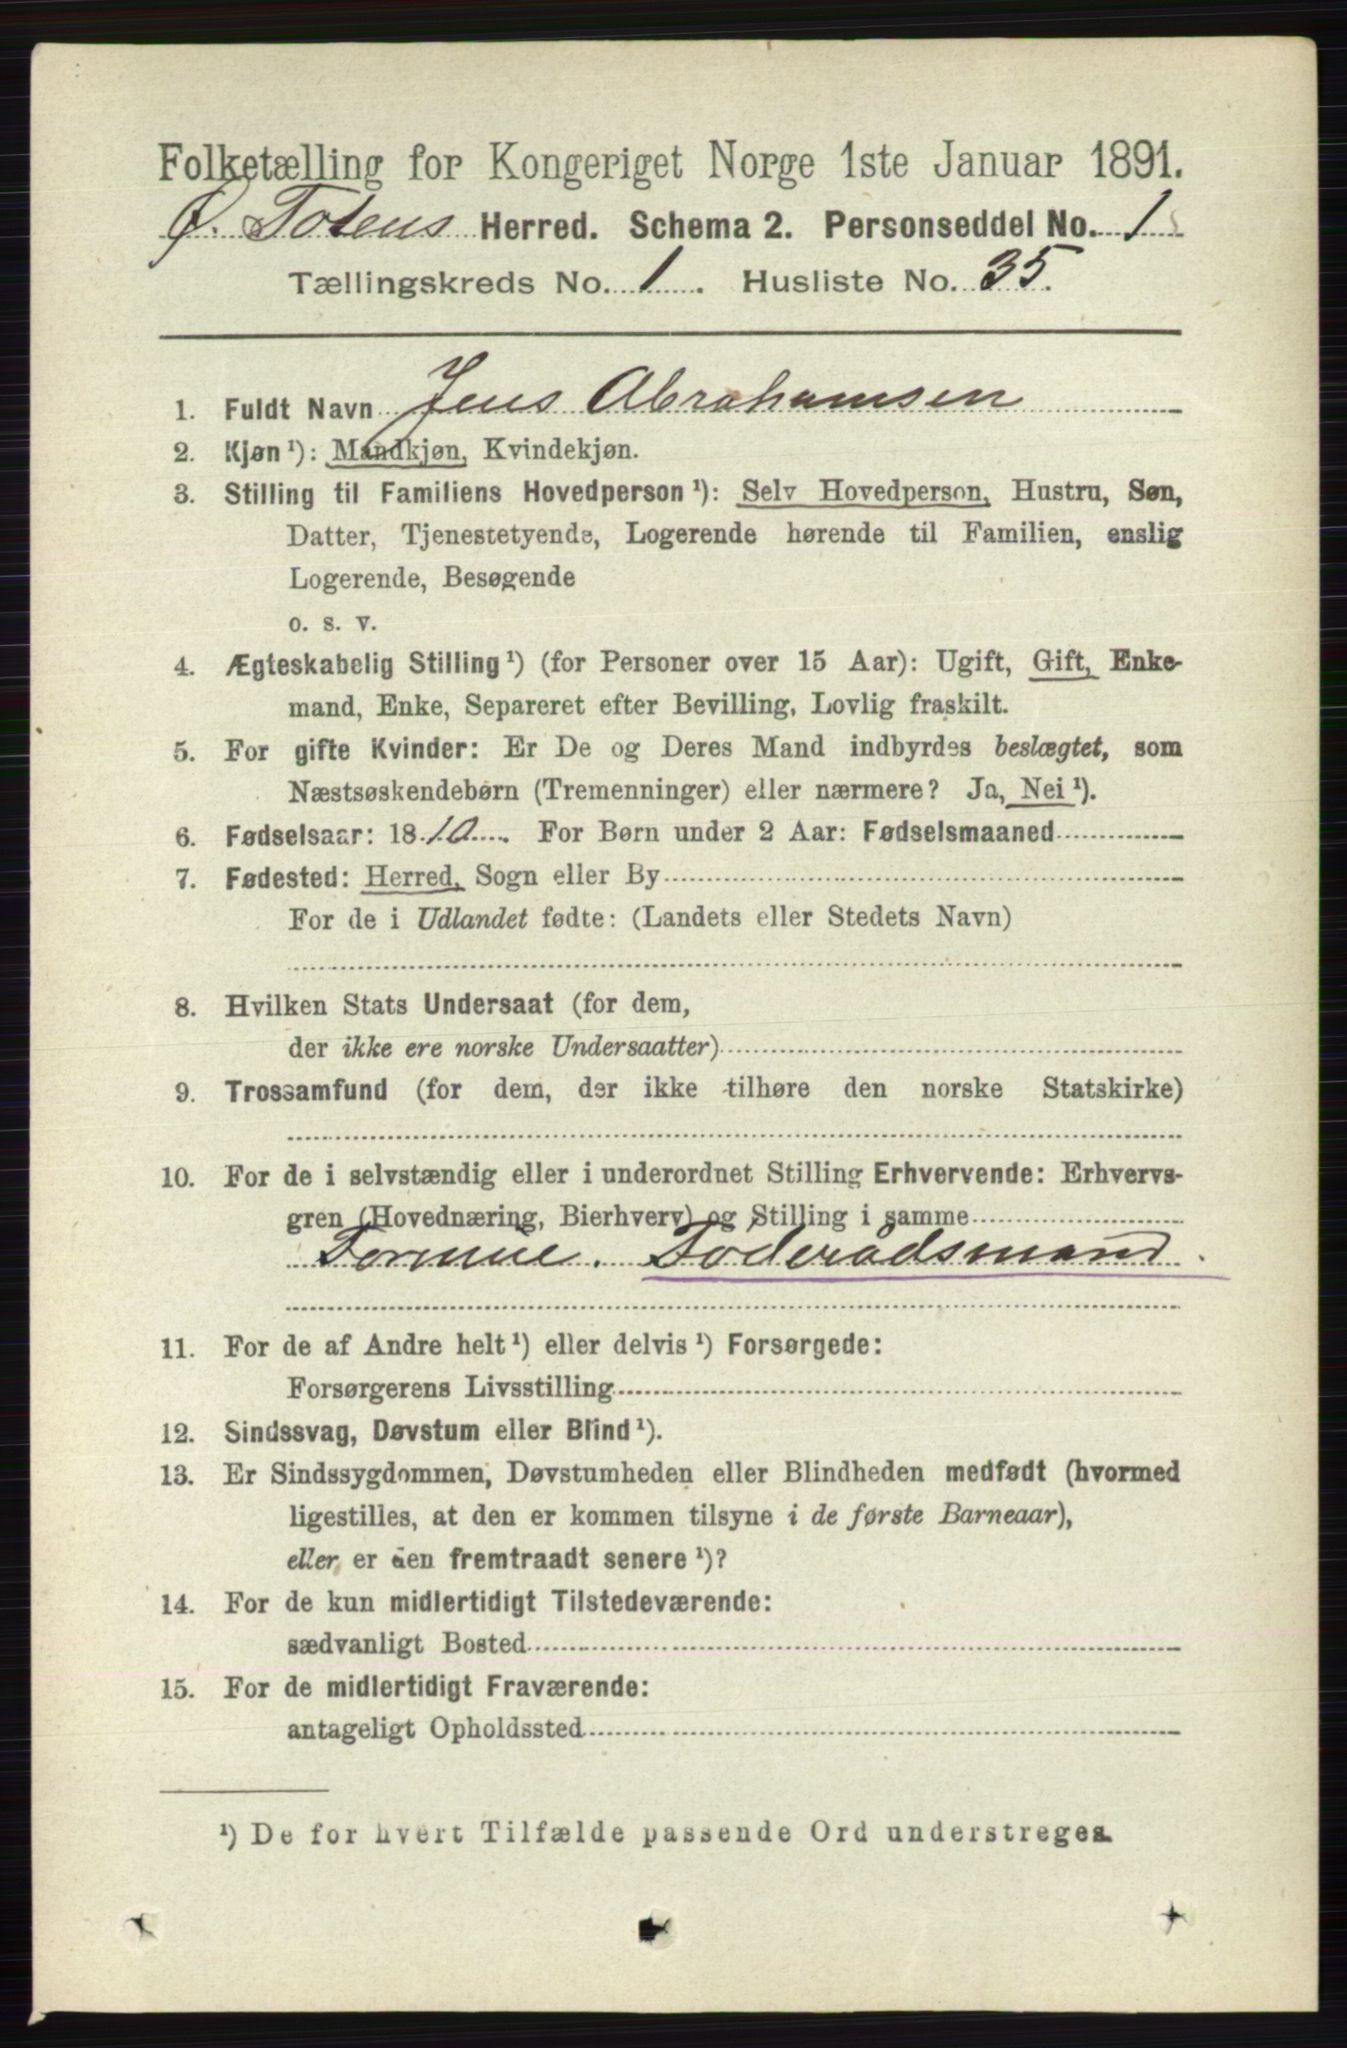 Folketælling for Kongeriget Norge 1ste Januar 1891.
Ø. Totens Herred. Schema 2. Personseddel No. 1
Tællingskreds No. 1. Husliste No. 35.
1. Fuldt Navn Jens Abrahamsen
2. Kjøn¹): Mandkjøn, Kvindekjøn.
3. Stilling til Familiens Hovedperson¹): Selv Hovedperson, Hustru, Søn,
Datter, Tjenestetyende, Logerende hørende til Familien, enslig
Logerende, Besøgende
o. s. v.
4. Ægteskabelig Stilling¹) (for Personer over 15 Aar): Ugift, Gift, Enke-
mand, Enke, Separeret efter Bevilling, Lovlig fraskilt.
5. For gifte Kvinder: Er De og Deres Mand indbyrdes beslægtet, som
Næstsøskendebørn (Tremenninger) eller nærmere? Ja, Nei¹).
6. Fødselsaar: 1810. For Børn under 2 Aar: Fødselsmaaned
7. Fødested: Herred, Sogn eller By
For de i Udlandet fødte: (Landets eller Stedets Navn)
8. Hvilken Stats Undersaat (for dem,
der ikke ere norske Undersaatter)
9. Trossamfund (for dem, der ikke tilhøre den norske Statskirke)
10. For de i selvstændig eller i underordnet Stilling Erhvervende: Erhvervs-
gren (Hovednæring, Bierhverv) og Stilling i samme
Formue. Föderådsmand.
11. For de af Andre helt¹) eller delvis¹) Forsørgede:
Forsørgerens Livsstilling
12. Sindssvag, Døvstum eller Blind¹).
13. Er Sindssygdommen, Døvstumheden eller Blindheden medfødt (hvormed
ligestilles, at den er kommen tilsyne i de første Barneaar),
eller er den fremtraadt senere¹)?
14. For de kun midlertidigt Tilstedeværende:
sædvanligt Bosted
15. For de midlertidigt Fraværende:
antageligt Opholdssted
¹) De for hvert Tilfælde passende Ord understreges.